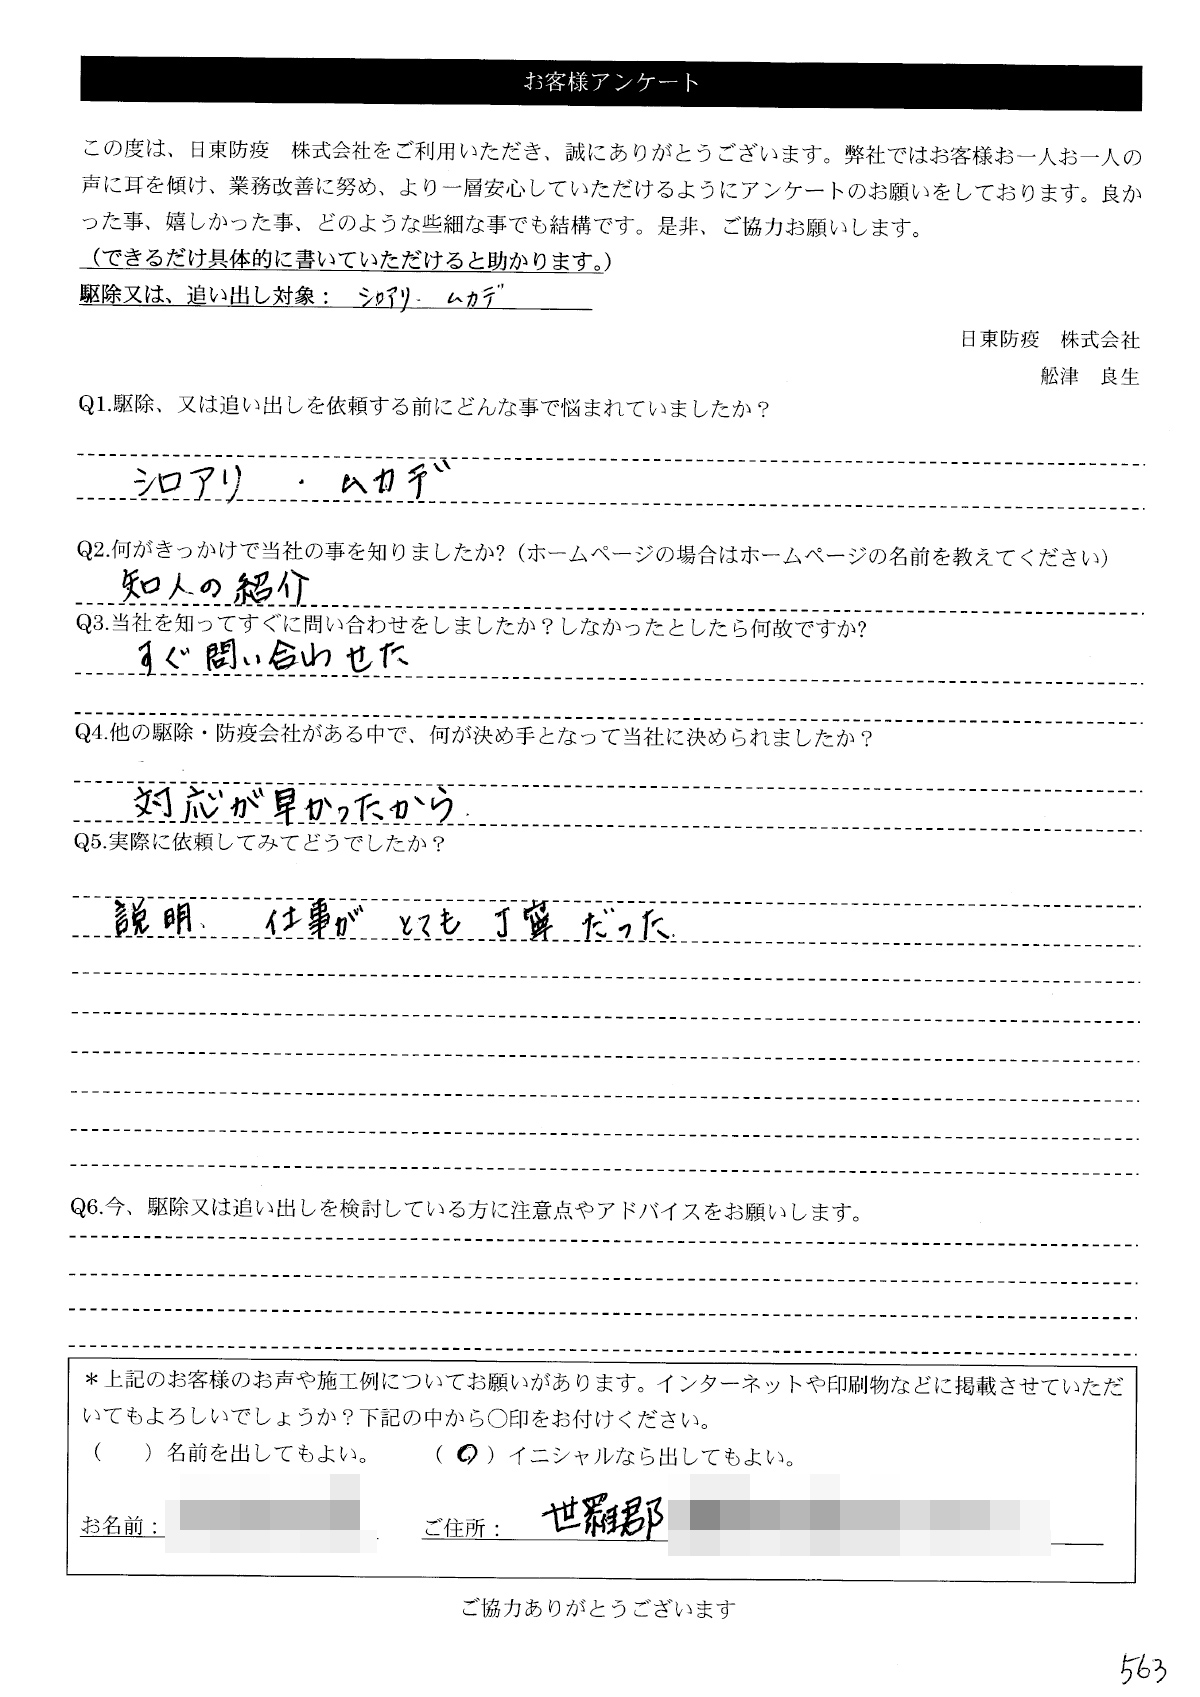 お客様アンケート
この度は、日東防疫　株式会社をご利用いただき、誠にありがとうございます。弊社ではお客様お一人お一人の
声に耳を傾け、業務改善に努め、より一層安心していただけるようにアンケートのお願いをしております。良か
った事、嬉しかった事、どのような些細な事でも結構です。是非、ご協力お願いします。
（できるだけ具体的に書いていただけると助かります。）
駆除又は、追い出し対象： シロアリ・ムカデ
日東防疫　株式会社
舩津　良生
Q1.駆除、又は追い出しを依頼する前にどんな事で悩まれていましたか？
シロアリ ・ ムカデ
Q2.何がきっかけで当社の事を知りましたか?（ホームページの場合はホームページの名前を教えてください）
知人の紹介
Q3.当社を知ってすぐに問い合わせをしましたか？しなかったとしたら何故ですか?
すぐ問い合わせた
Q4.他の駆除・防疫会社がある中で、何が決め手となって当社に決められましたか？
対応が早かったから.
Q5.実際に依頼してみてどうでしたか？
説明、仕事が とても 丁寧 だった.
Q6.今、駆除又は追い出しを検討している方に注意点やアドバイスをお願いします。
＊上記のお客様のお声や施工例についてお願いがあります。インターネットや印刷物などに掲載させていただ
いてもよろしいでしょうか？下記の中から〇印をお付けください。
（　　）名前を出してもよい。　　（ 〇 ）イニシャルなら出してもよい。
お名前：　　ご住所： 世羅郡
ご協力ありがとうございます
563